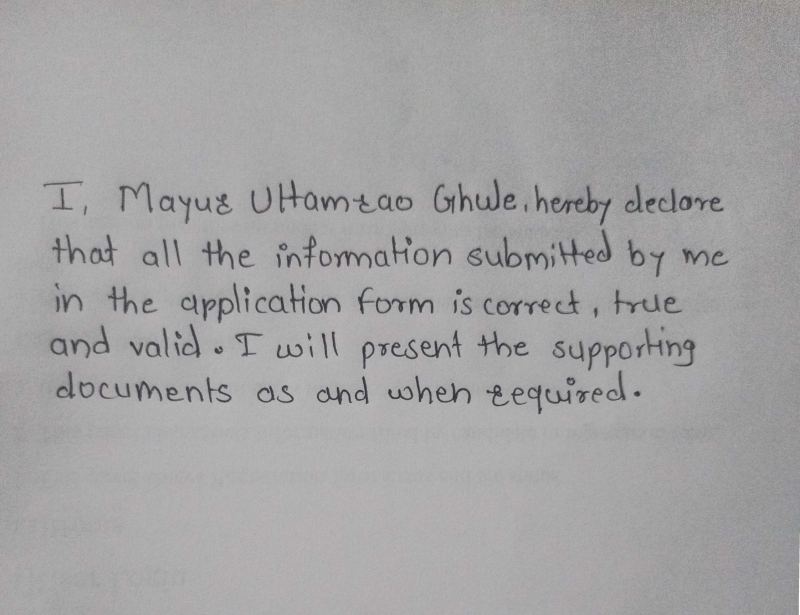 I, Mayur Uttamrao Ghule, hereby declare
that all the information submitted by me
in the application form is correct, true
and valid. I will present the supporting
documents as and when required.